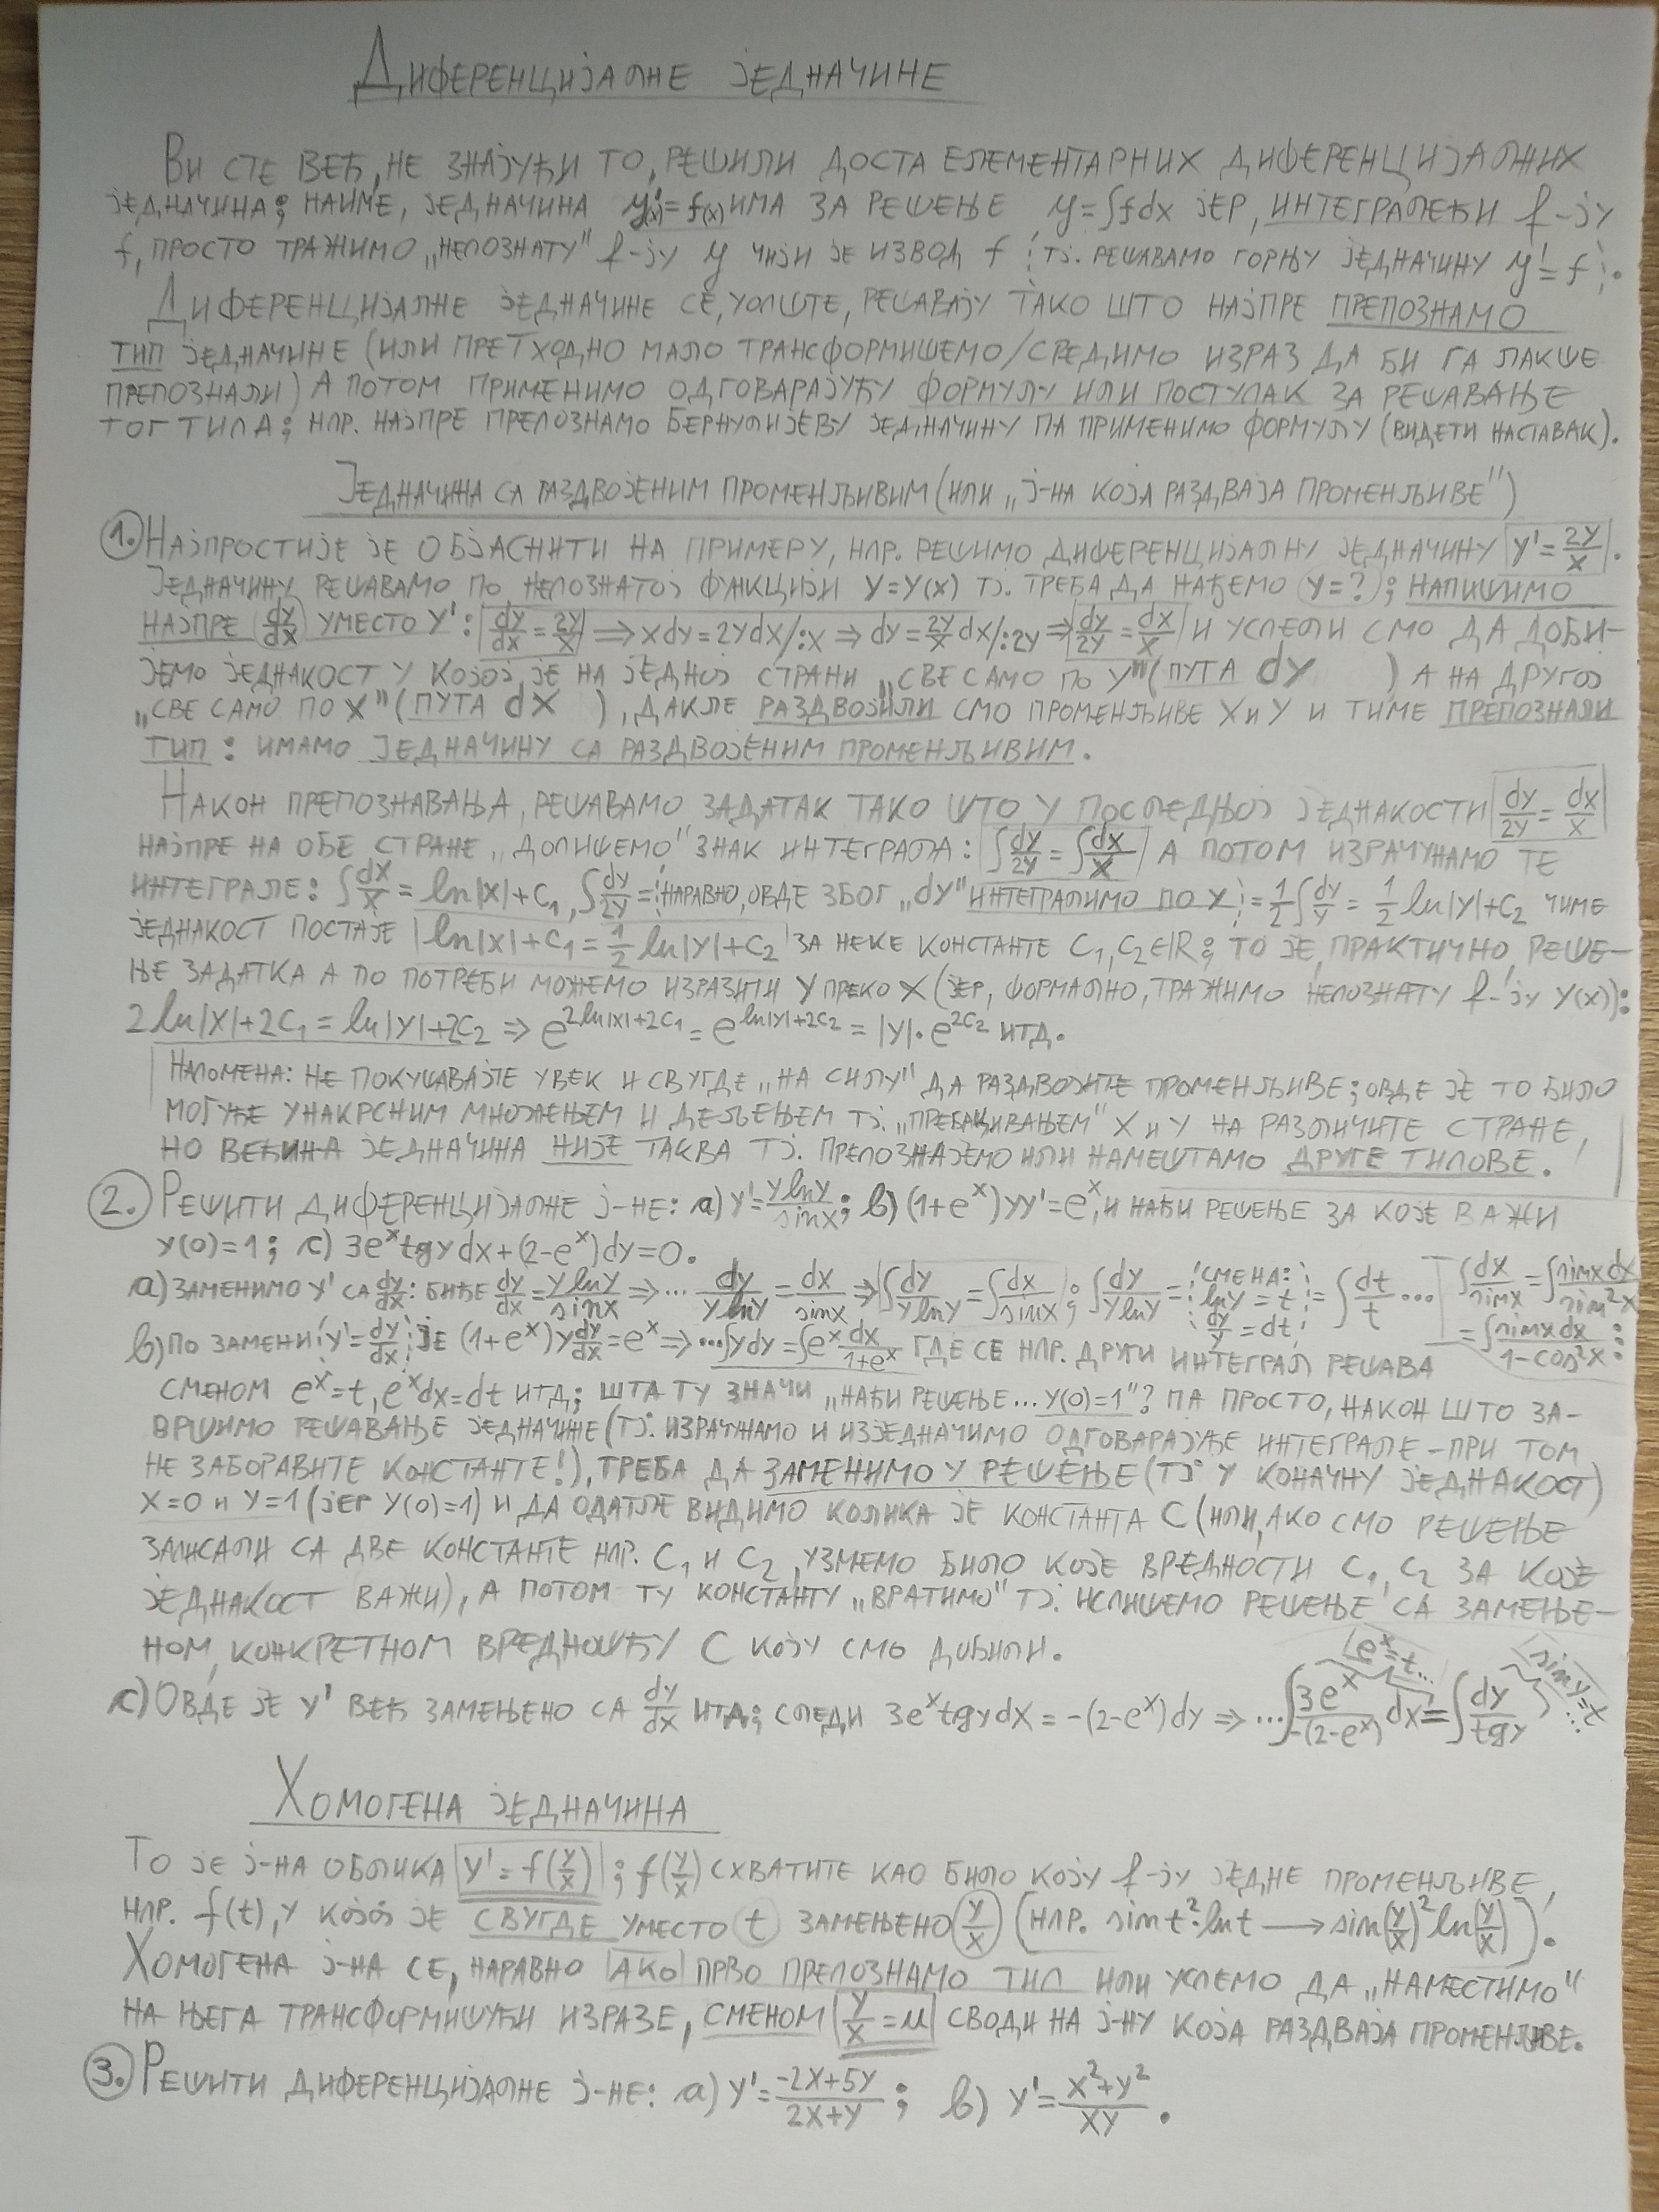 Диференцијалне једначине
Ви сте већ, не знајући то, решили доста елементарних диференцијалних
једначина; наиме, једначина y'(x)=f(x) има за решење y=∫fdx јер, интегралећи f-ју
f, просто тражимо „непознату" f-ју y чији је извод f (тј. решавамо горњу једначину y'=f).
Диференцијалне једначине се, уопште, решавају тако што најпре препознамо
тип једначине (или претходно мало трансформишемо/средимо израз да би га лакше
препознали) а потом применимо одговарајућу формулу или поступак за решавање
тог типа; нпр. најпре препознамо Бернулијеву једначину па применимо формулу (видети наставак).
Једначина са раздвојеним променљивим (или „ј-на која раздваја променљиве")
1. Најпростије је објаснити на примеру, нпр. решимо диференцијалну једначину y'=2y/x.
Једначину решавамо по непознатој функцији y=y(x) тј. треба да нађемо y=?; напишимо
најпре dy/dx уместо y': dy/dx=2y/x ⇒ xdy=2ydx/:x ⇒ dy=2y/x dx/:2y ⇒ dy/2y=dx/x и успели смо да доби-
јемо једнакост у којој је на једној страни „све само по y" (пута dy ) а на другој
„све само по x" (пута dx ), дакле раздвојили смо променљиве x и y и тиме препознали
тип: имамо једначину са раздвојеним променљивим.
Након препознавања, решавамо задатак тако што у последњој једнакости dy/2y=dx/x
најпре на обе стране „допишемо" знак интеграла: ∫dy/2y=∫dx/x а потом израчунамо те
интеграле: ∫dx/x=ln|x|+c₁, ∫dy/2y=(наравно, овде због „dy" интегралимо по y)=1/2∫dy/y=1/2 ln|y|+c₂ чиме
једнакост постаје ln|x|+c₁=1/2 ln|y|+c₂ за неке константе c₁,c₂∈ℝ; то је, практично, реше-
ње задатка а по потреби можемо изразити y преко x (јер, формално, тражимо непознату f-ју y(x)):
2ln|x|+2c₁=ln|y|+2c₂ ⇒ e^(2ln|x|+2c₁)=e^(ln|y|+2c₂)=|y|·e^(2c₂) итд.
Напомена: не покушавајте увек и свугде „на силу" да раздвојите променљиве; овде је то било
могуће унакрсним множењем и дељењем тј. „пребацивањем" x и y на различите стране,
но већина једначина није таква тј. препознајемо или намештамо друге типове.
2. Решити диференцијалне ј-не: a) y'=ylny/sinx; b) (1+eˣ)yy'=eˣ, и наћи решење за које важи
y(0)=1; c) 3eˣtgydx+(2-eˣ)dy=0.
a) Заменимо y' са dy/dx: биће dy/dx=ylny/sinx ⇒ ... dy/ylny=dx/sinx ⇒ ∫dy/ylny=∫dx/sinx; ∫dy/ylny=(смена: lny=t, dy/y=dt)=∫dt/t ... ∫dx/sinx=∫sinxdx/sin²x
=∫sinxdx/1-cos²x :
b) По замени y'=dy/dx је (1+eˣ)y dy/dx=eˣ ⇒ ... ∫ydy=∫eˣ dx/1+eˣ где се нпр. други интеграл решава
сменом eˣ=t, eˣdx=dt итд; шта ту значи „наћи решење... y(0)=1"? Па просто, након што за-
вршимо решавање једначине (тј. израчунамо и изједначимо одговарајуће интеграле - при том
не заборавите константе!), треба да заменимо у решење (тј у коначну једнакост)
x=0 и y=1 (јер y(0)=1) и да одатле видимо колика је константа C (или, ако смо решење
записали са две константе нпр. c₁ и c₂, узмемо било које вредности c₁,c₂ за које
једнакост важи), а потом ту константу „вратимо" тј. испишемо решење са замење-
ном, конкретном вредношћу C коју смо добили.
eˣ=t...
siny=t ...
c) Овде је y' већ замењено са dy/dx итд; следи 3eˣtgydx=-(2-eˣ)dy ⇒ ...∫3eˣ/-(2-eˣ) dx=∫dy/tgy
Хомогена једначина
То је ј-на облика y'=f(y/x); f(y/x) схватите као било коју f-ју једне променљиве,
нпр. f(t), у којој је свугде уместо t замењено y/x (нпр. sint²·lnt → sin(y/x)²ln(y/x)).
Хомогена ј-на се, наравно ако прво препознамо тип или успемо да „наместимо"
на њега трансформишући изразе, сменом y/x=u своди на ј-ну која раздваја променљиве.
3. Решити диференцијалне ј-не: a) y'=-2x+5y/2x+y; b) y'=x²+y²/xy.